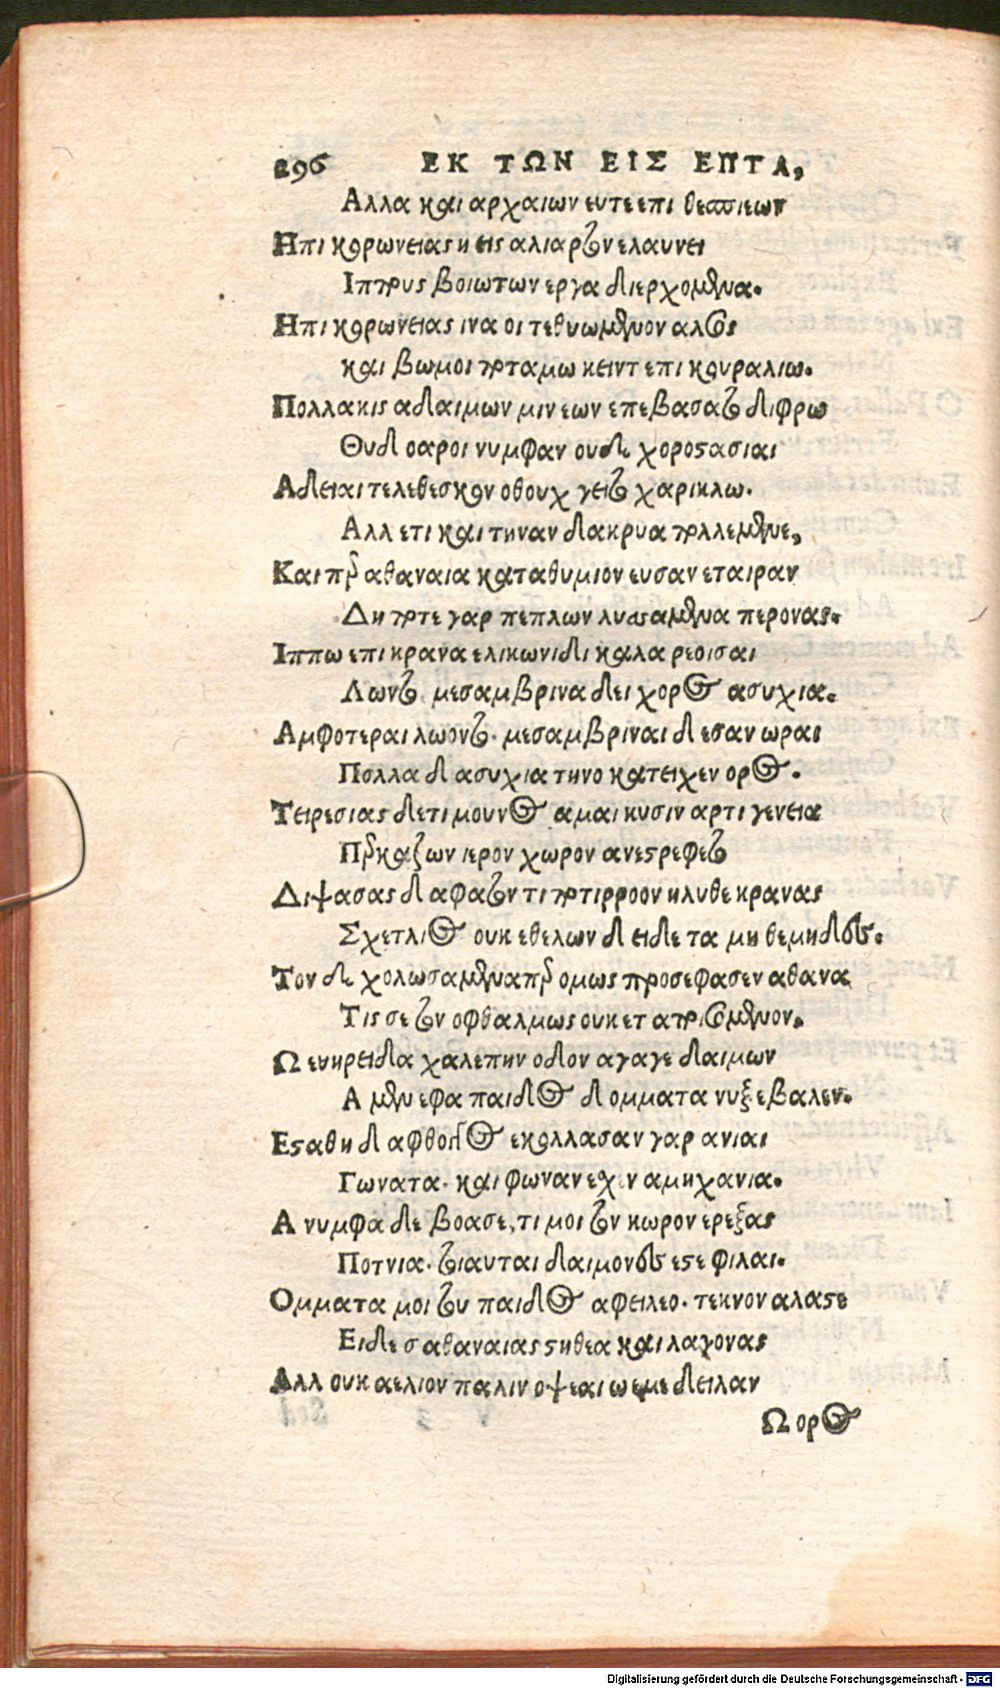 296 ΕΚ ΤΩΝ ΕΙΣ ΕΠΤΑ,
Αλλα και αρχαιων ευτε επι θεσπιεων
Ηπι κορωνειας η εις αλιαρτον ελαυνει
Ιππους βοιωτων εργα διερχομενα.
Ηπι κορωνειας ινα οι τεθυωμενον αλσος
και βωμοι ποταμω κειντ επι κουραλιω.
Πολλακις α δαιμων μιν εων επεβασατο διφρω
Ουδ οαροι νυμφαν ουδε χοροστασιαι
Αδειαι τελεθεσκον οθ ουχ αγειτο χαρικλω.
Αλλ ετι και τηναν δακρυα πολλ εμενε,
Και περ αθαναια καταθυμιον ευσαν εταιραν
Δη ποτε γαρ πεπλων λυσαμενα περονας.
Ιππω επι κρανα ελικωνιδι καλα ρεοισαι
Λωντο μεσαμβρινα δ ειχ ορος ασυχια.
Αμφοτεραι λωοντο. μεσαμβριναι δ εσαν ωραι
Πολλα δ ασυχια τηνο κατειχεν ορος.
Τειρεσιας δ ετι μουνος αμαι κυσιν αρτι γενεια
Περκαζων ιερον χωρον ανεστρεφετο
Διψασας δ αφατον τι ποτι ρροον ηλυθε κρανας
Σχετλιος ουκ εθελων δ ειδε τα μη θεμιδος.
Τον δε χολωσαμενα περ ομως προσεφασεν αθανα
Τις σε τον οφθαλμως ουκετ αποισομενον.
Ω ευηρειδα χαλεπην οδον αγαγε δαιμων
Α μεν εφα παιδος δ ομματα νυξ εβαλεν.
Εσταθη δ αφθογγος εκολλασαν γαρ ανιαι
Γωνατα. και φωναν εχεν αμηχανια.
Α νυμφα δε βοασε, τι μοι τον κωρον ερεξας
Ποτνια. τοιαυται δαιμονος εστε φιλαι.
Ομματα μοι του παιδος αφειλεο. τεκνον αλαστε
Ειδες αθαναιας στηθεα και λαγονας
Αλλ ουκ αελιον παλιν οψεαι ω εμε δειλαν
Ω ορος
Digitalisierung gefördert durch die Deutsche Forschungsgemeinschaft - DFG